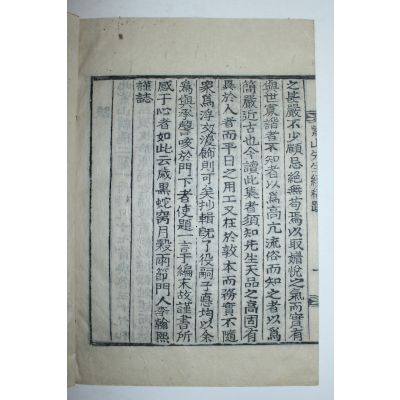 之甚嚴不少顧忌絶無苟焉以取媚悅之氣而實有
與世寡諧者不知者以爲高亢流俗而知之者以爲
簡嚴近古也今讀此集者須知先生天品之高固有
異於人者而平日之用工又在於敦本而務實不隨
衆爲浮文渡飾則可矣抄輯旣了役嗣子憙均以余
爲與承謦咳於門下者使題一言于編末故謹書所
感于心者如此云歲黑蛇窝月穀雨節門人李翰熙
謹誌
山先生